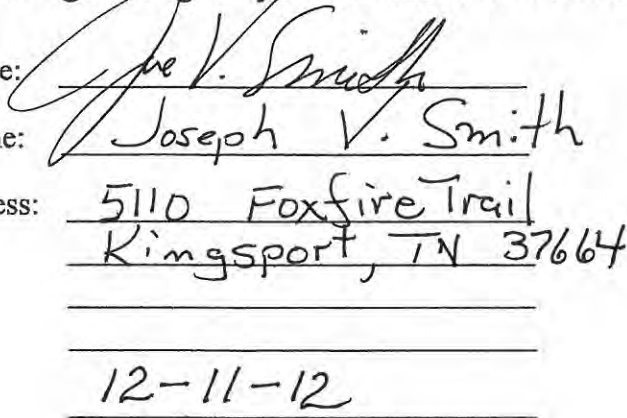 e: Joe V. Smith
ne: Joseph V. Smith
ess: 5110 Foxfire Trail
Kingsport, TN 37664
12-11-12